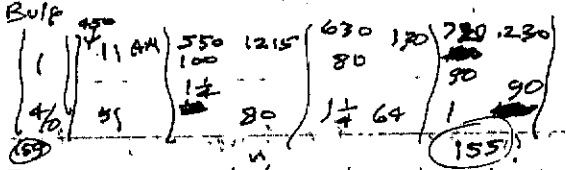 Bulp
450
11 AM 550 1215 630 130 730 .230
1 100 80
1¼ 90 90
4/0 51 80 1¼ 64 1
155